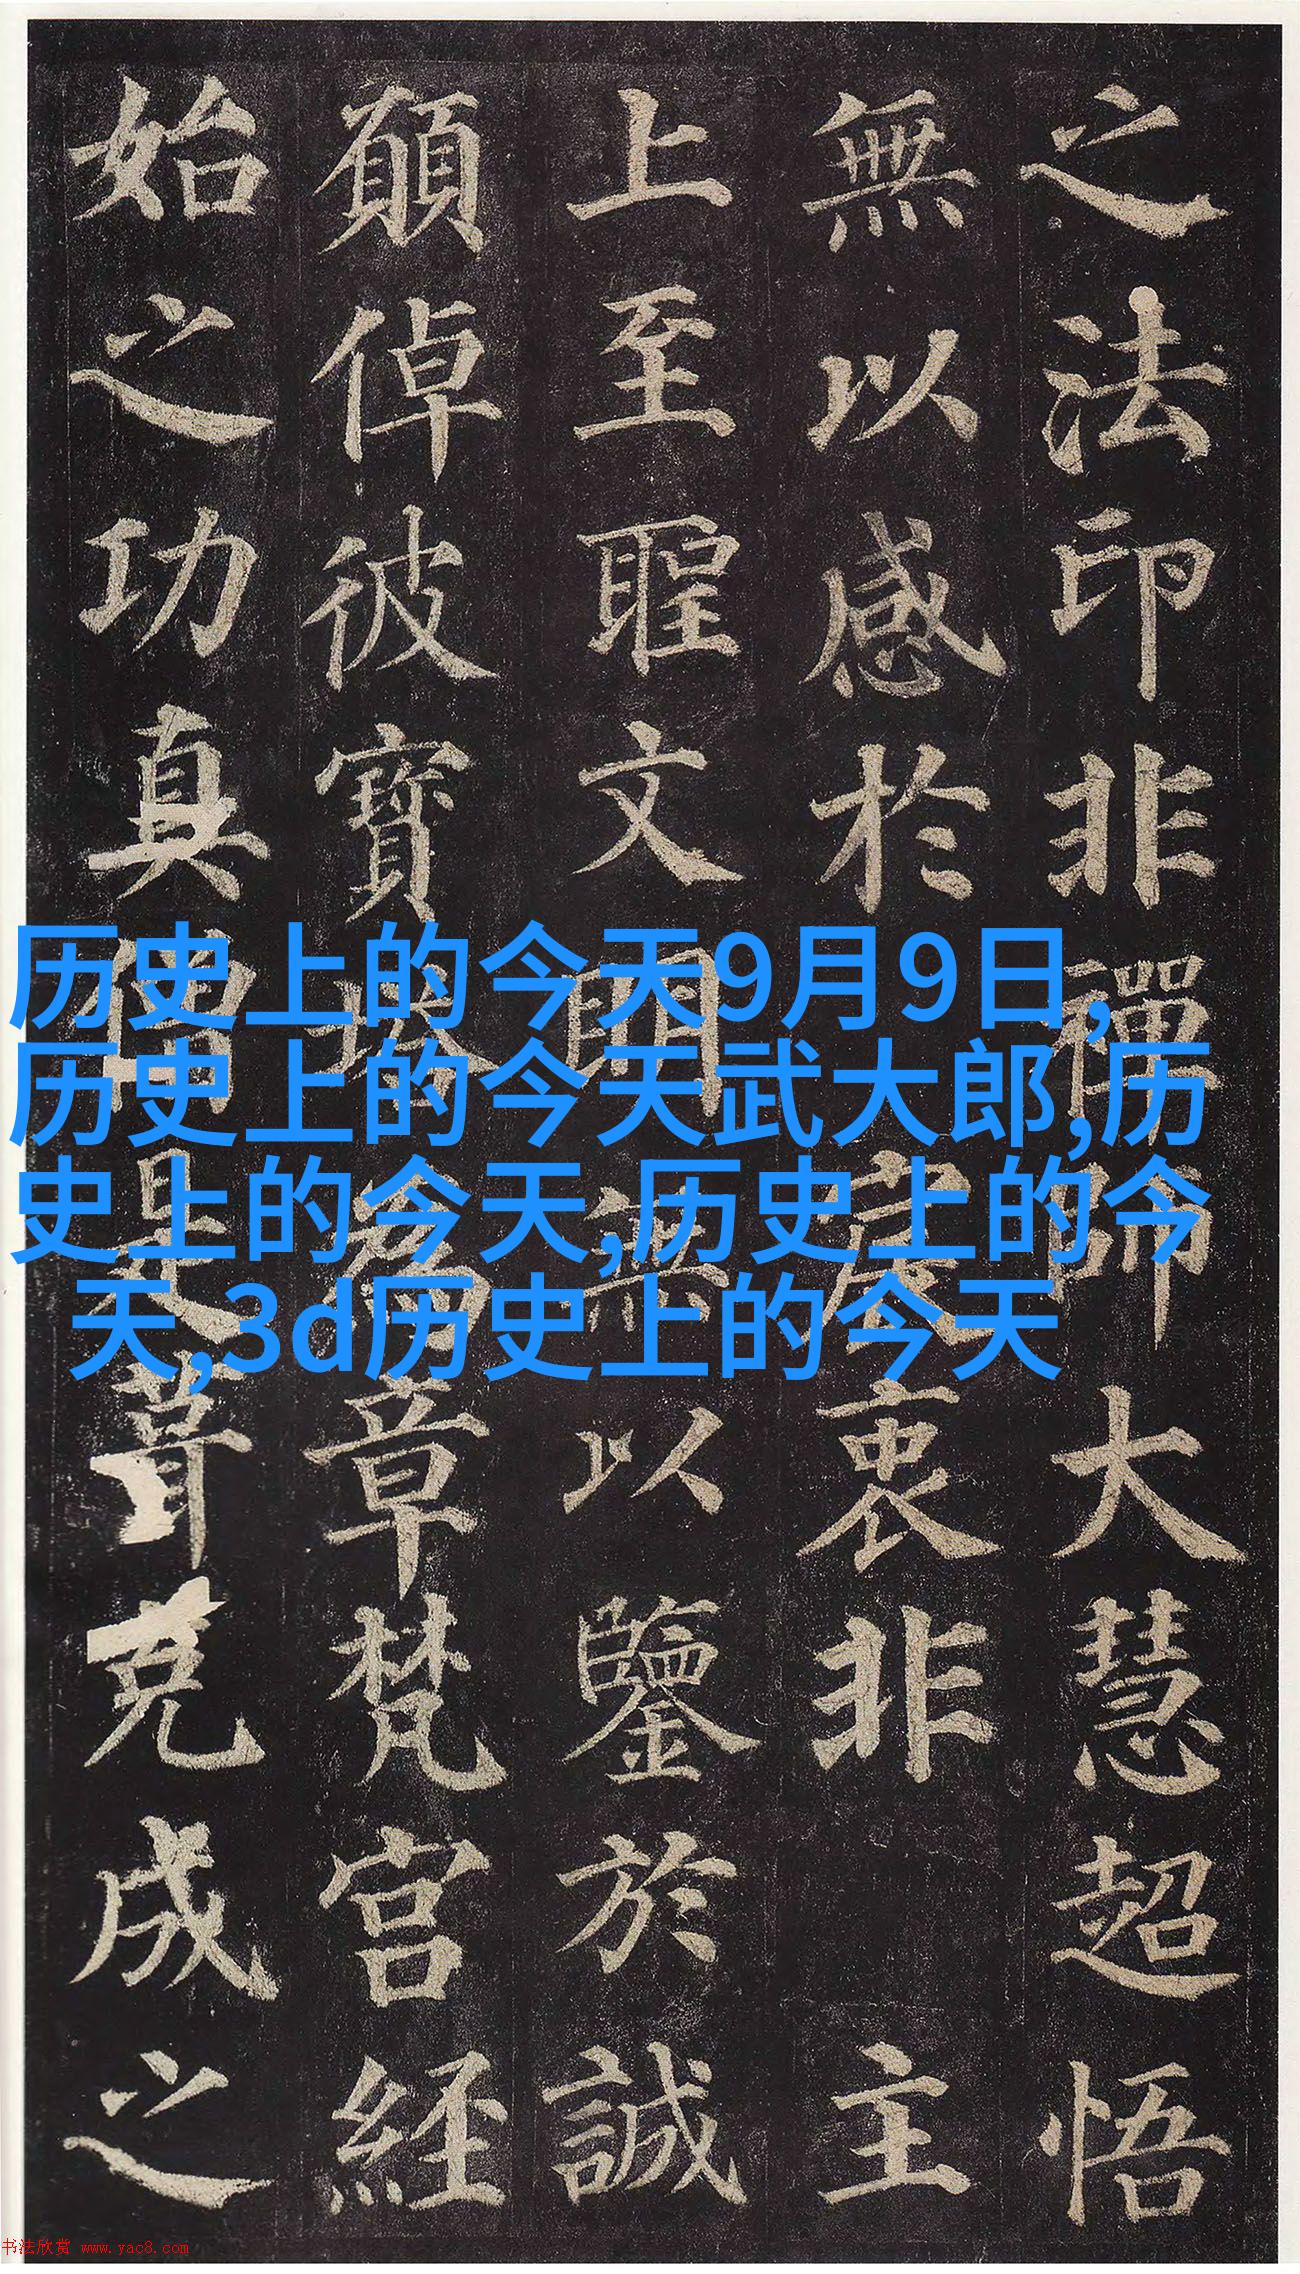 之法印非禪師大慧超悟
無以感於宸衷非主
上至聖文明無以鑒於誠
願倬彼寶塔為章梵宮經
始之功真僧是葺克成之
历史上的今天9月9日,
历史上的今天武大郎,历
史上的今天,历史上的今
天,3d历史上的今天
书法欣赏 www.yac8.com